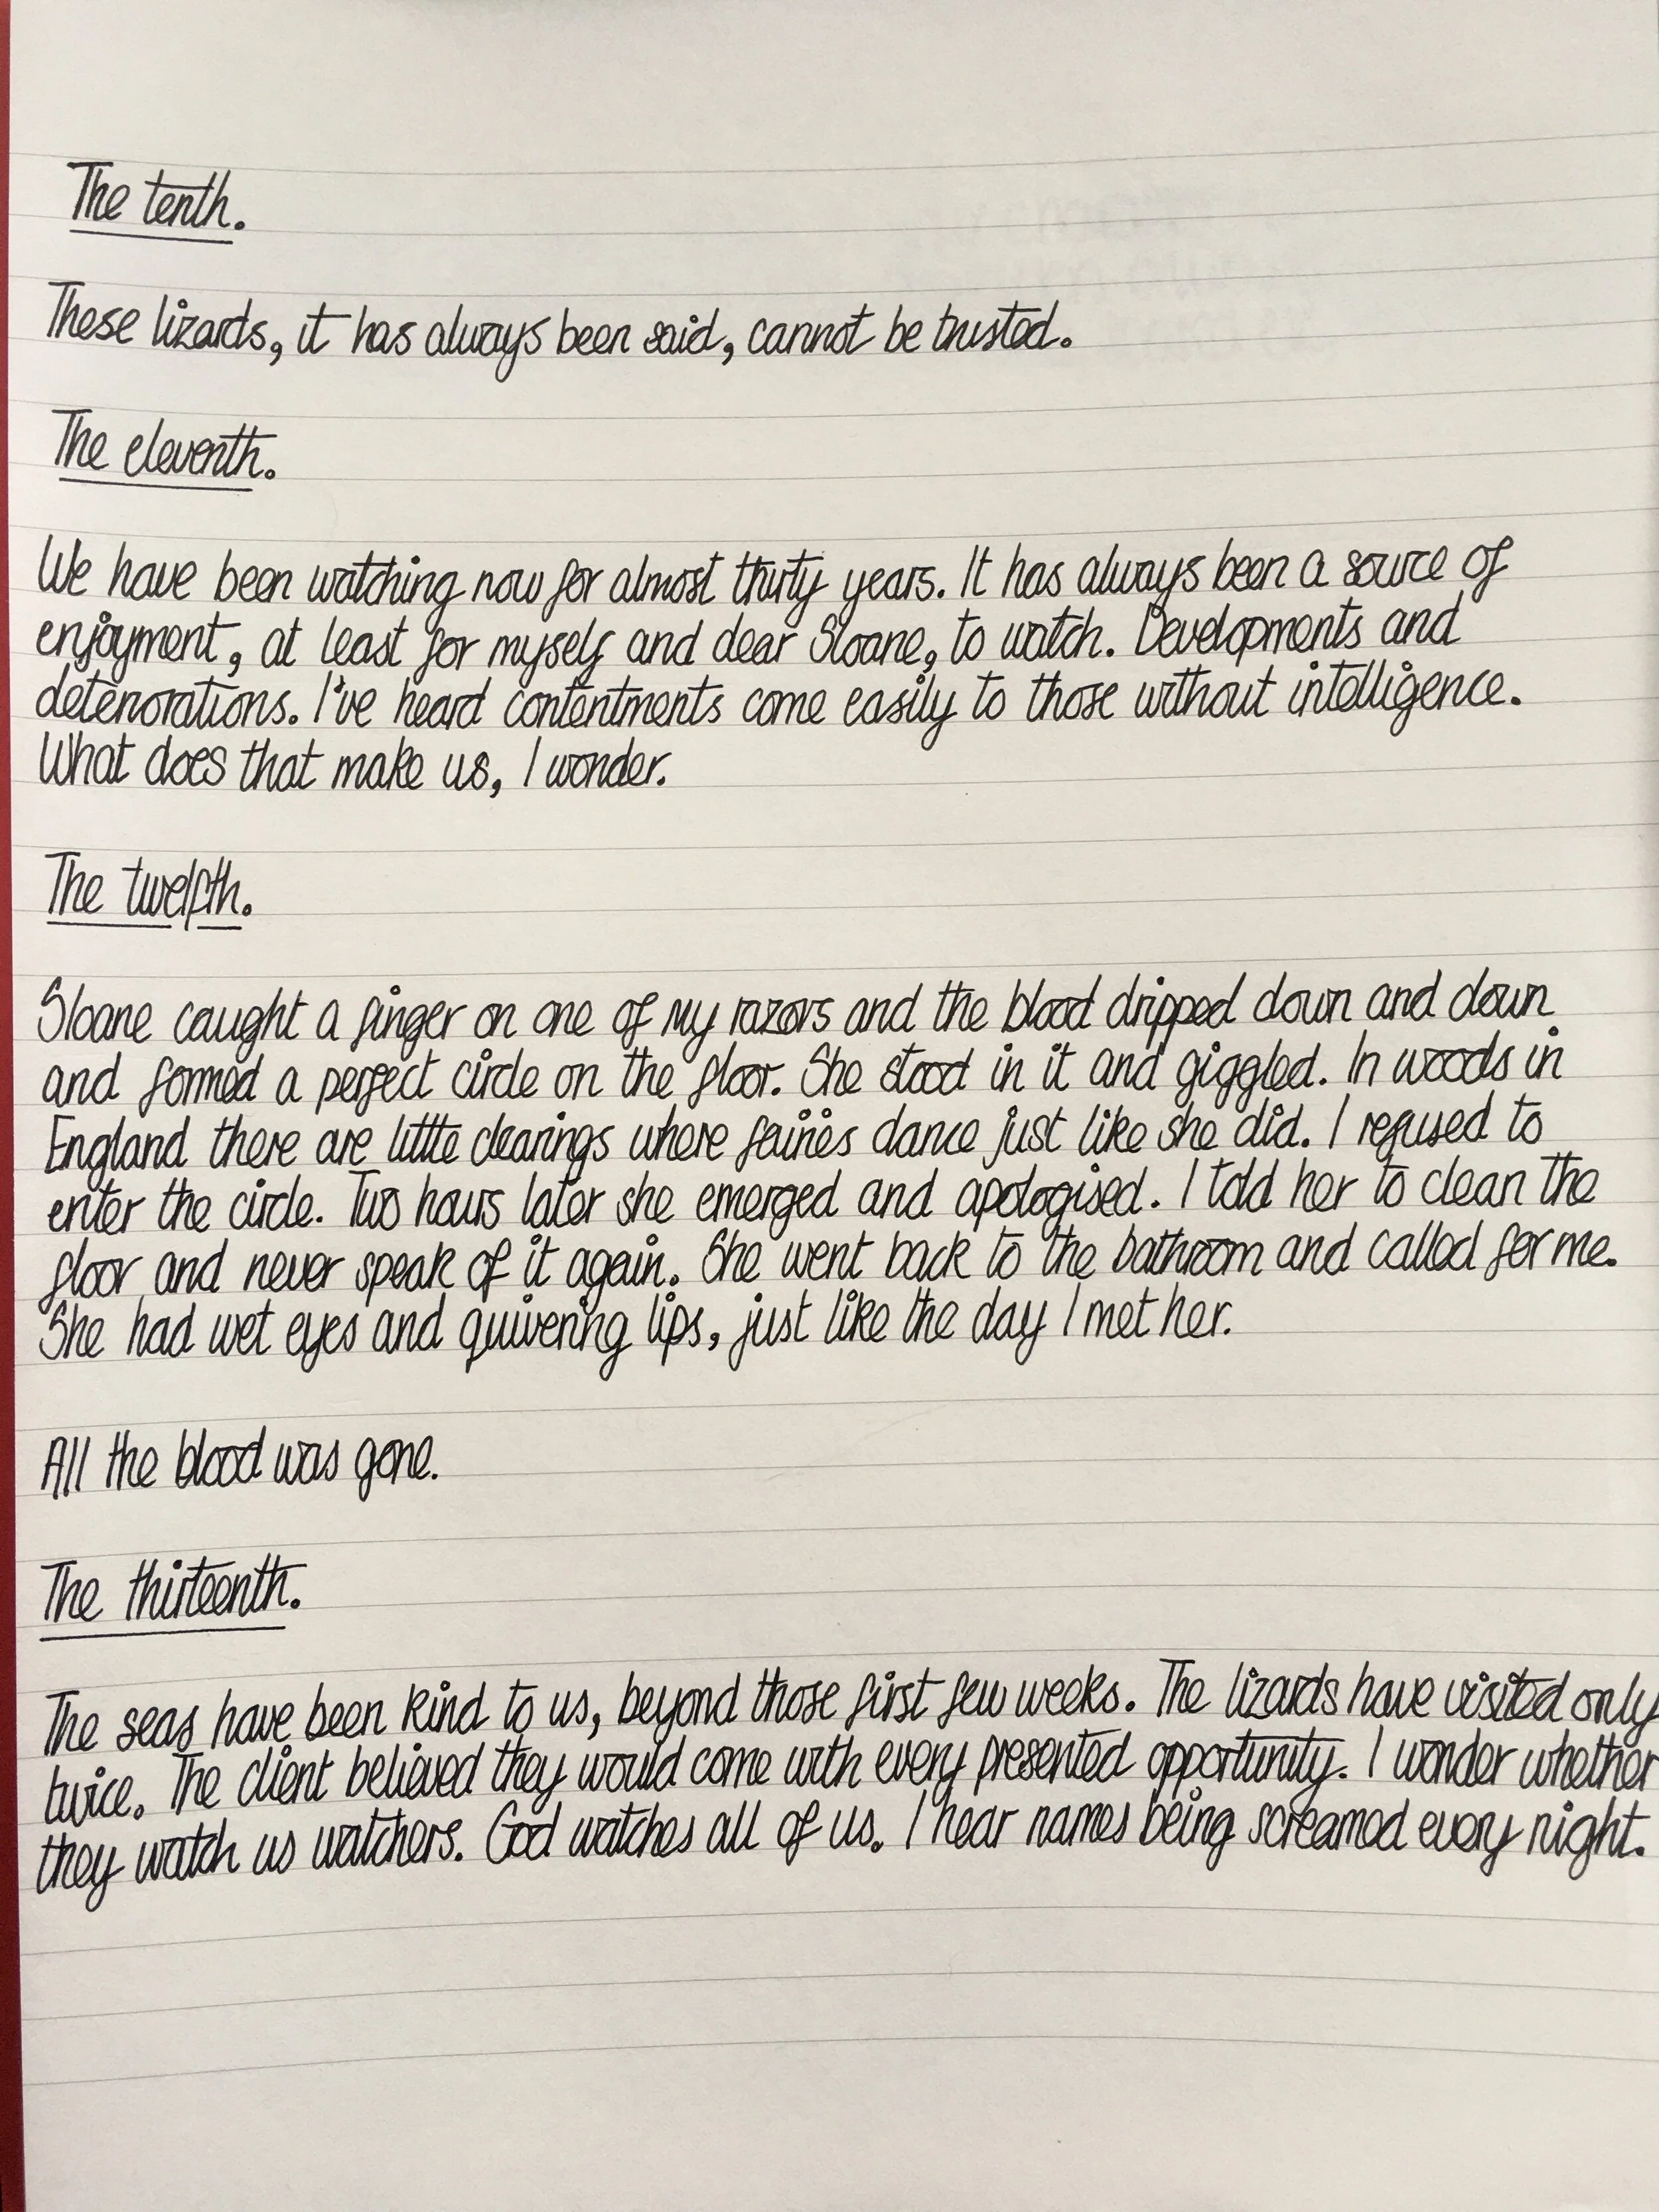 The tenth.
These lizards, it has always been said, cannot be trusted.
The eleventh.
We have been watching now for almost thirty years. It has always been a source of
enjoyment, at least for myself and dear Sloane, to watch. Developments and
deteriorations. I've heard contentments come easily to those without intelligence.
What does that make us, I wonder.
The twelfth.
Sloane caught a finger on one of my razors and the blood dripped down and down
and formed a perfect circle on the floor. She stood in it and giggled. In woods in
England there are little clearings where fairies dance just like she did. I refused to
enter the circle. Two hours later she emerged and apologised. I told her to clean the
floor and never speak of it again. She went back to the bathroom and called for me.
She had wet eyes and quivering lips, just like the day I met her.
All the blood was gone.
The thirteenth.
The seas have been kind to us, beyond those first few weeks. The lizards have visited only
twice. The client believed they would come with every presented opportunity. I wonder whether
they watch us watchers. God watches all of us. I hear names being screamed every night.